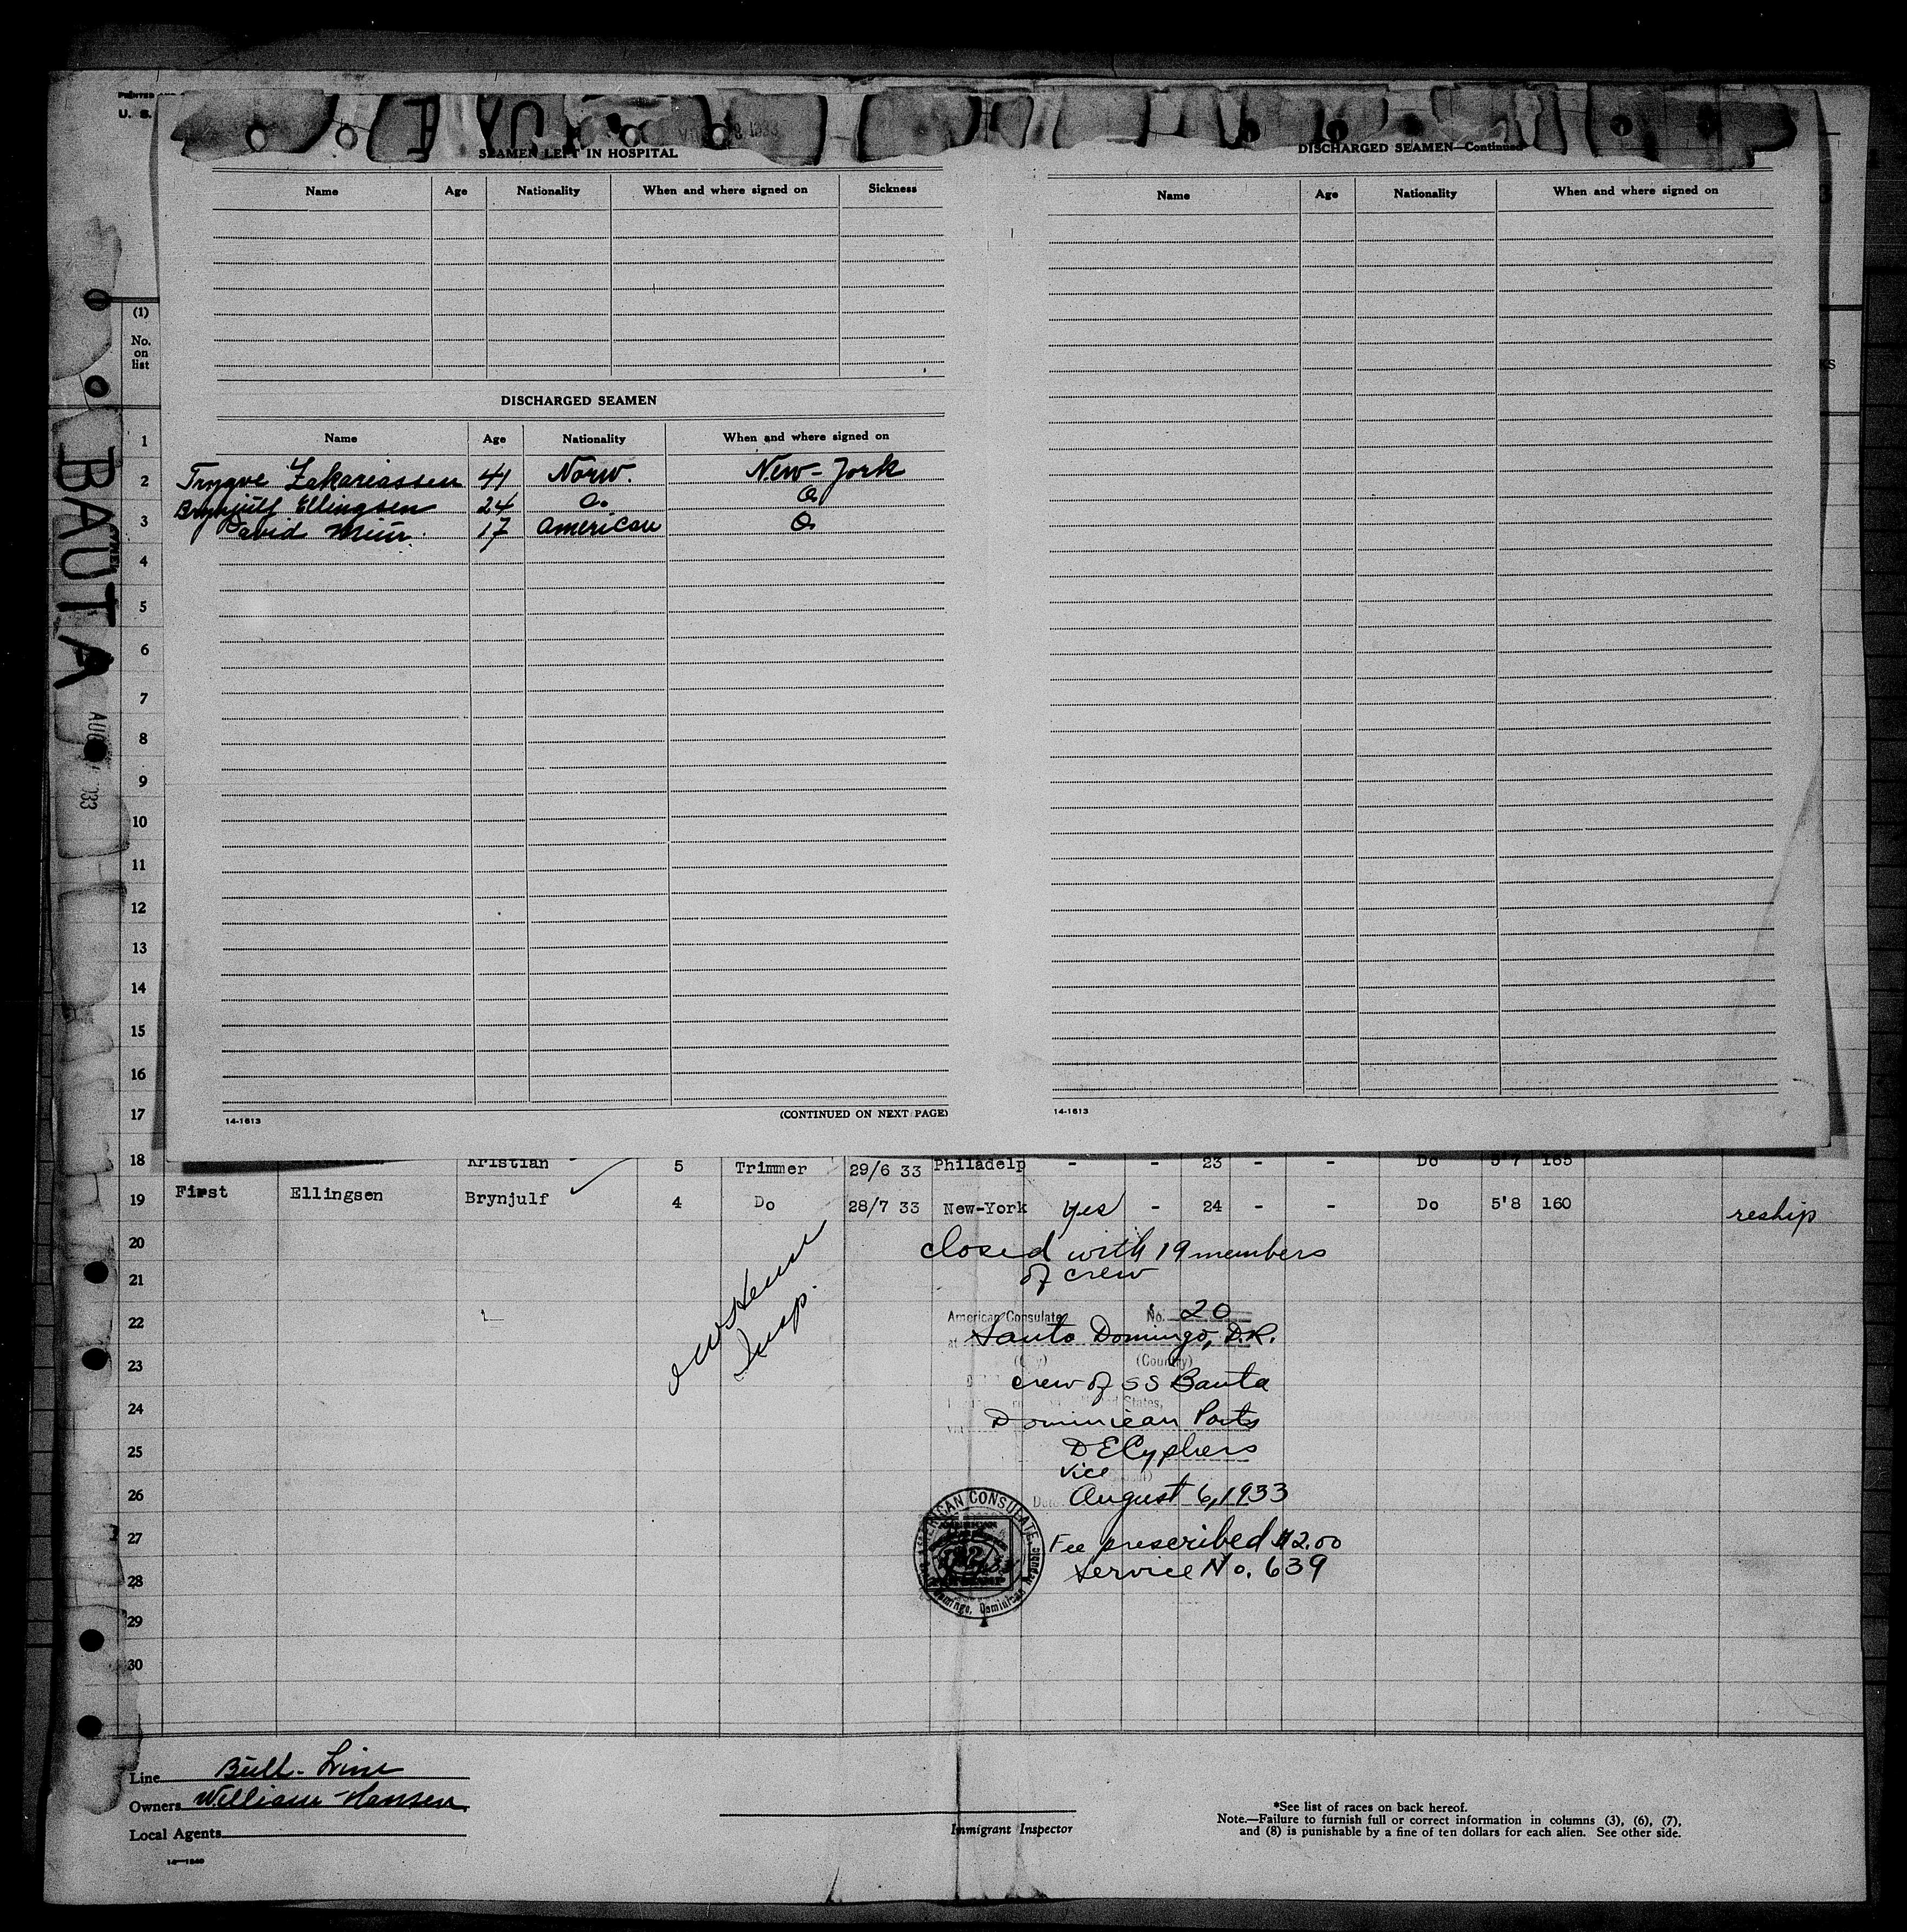 U. S.
SEAMEN LEFT IN HOSPITAL
Name Age Nationality When and where signed on Sickness
DISCHARGED SEAMEN
Name Age Nationality When and where signed on
Trygve Zakariassen 41 Norw. New-York
Brynjulf Ellingsen 24 Do. Do
David Muir 17 American Do
(CONTINUED ON NEXT PAGE)
14-1613
DISCHARGED SEAMEN—Continued
Name Age Nationality When and where signed on
14-1613
BAUTA
AUG
(1)
No.
on
list
1
2
3
4
5
6
7
8
9
10
11
12
13
14
15
16
17
18 Kristian 5 Trimmer 29/6 33 Philadelp - - 23 - - Do 5'7 165
19 First Ellingsen Brynjulf 4 Do 28/7 33 New-York yes - 24 - - Do 5'8 160 reship
20
21
22
23
24
25
26
27
28
29
30
closed with 19 members
of crew
American Consulate No. 20
at Santo Domingo, D.R.
(Country)
crew of SS Bauta
Dominican Ports
D E Cyphers
Vice
August 6, 1933
Fee prescribed $2.00
Service No. 639
AMERICAN CONSULATE
Domingo, Dominican Republic
Insp.
Line Bull-Line
Owners William Hansen.
Local Agents
Immigrant Inspector
*See list of races on back hereof.
Note.—Failure to furnish full or correct information in columns (3), (6), (7),
and (8) is punishable by a fine of ten dollars for each alien. See other side.